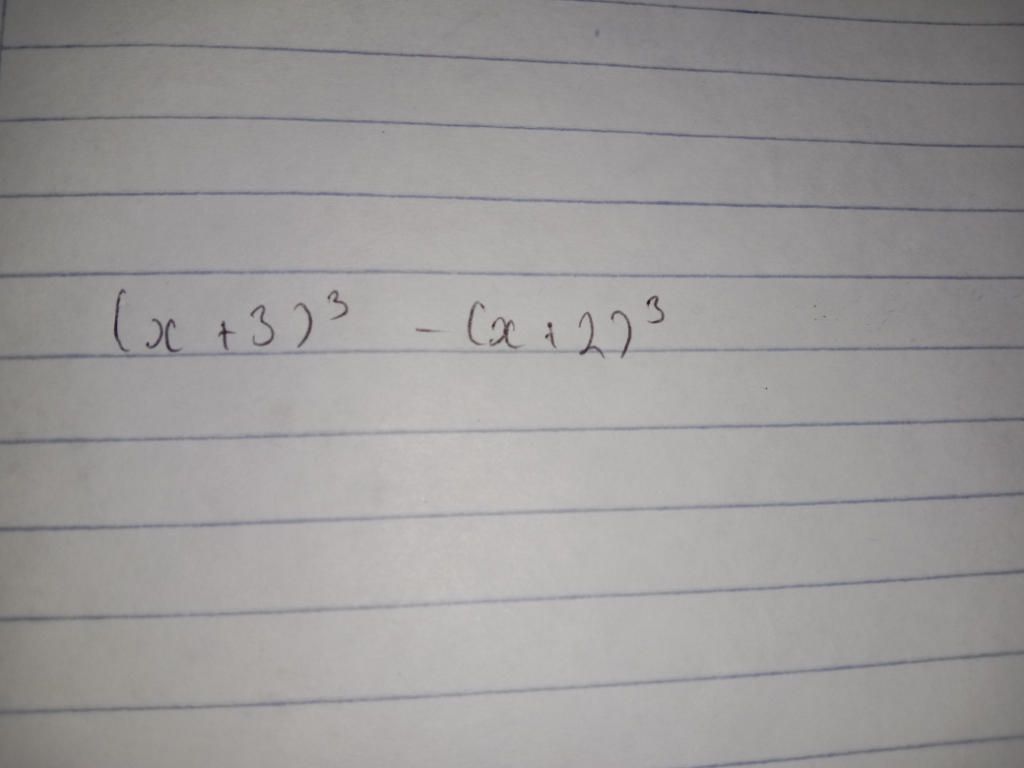 (x + 3)³ - (x + 2)³